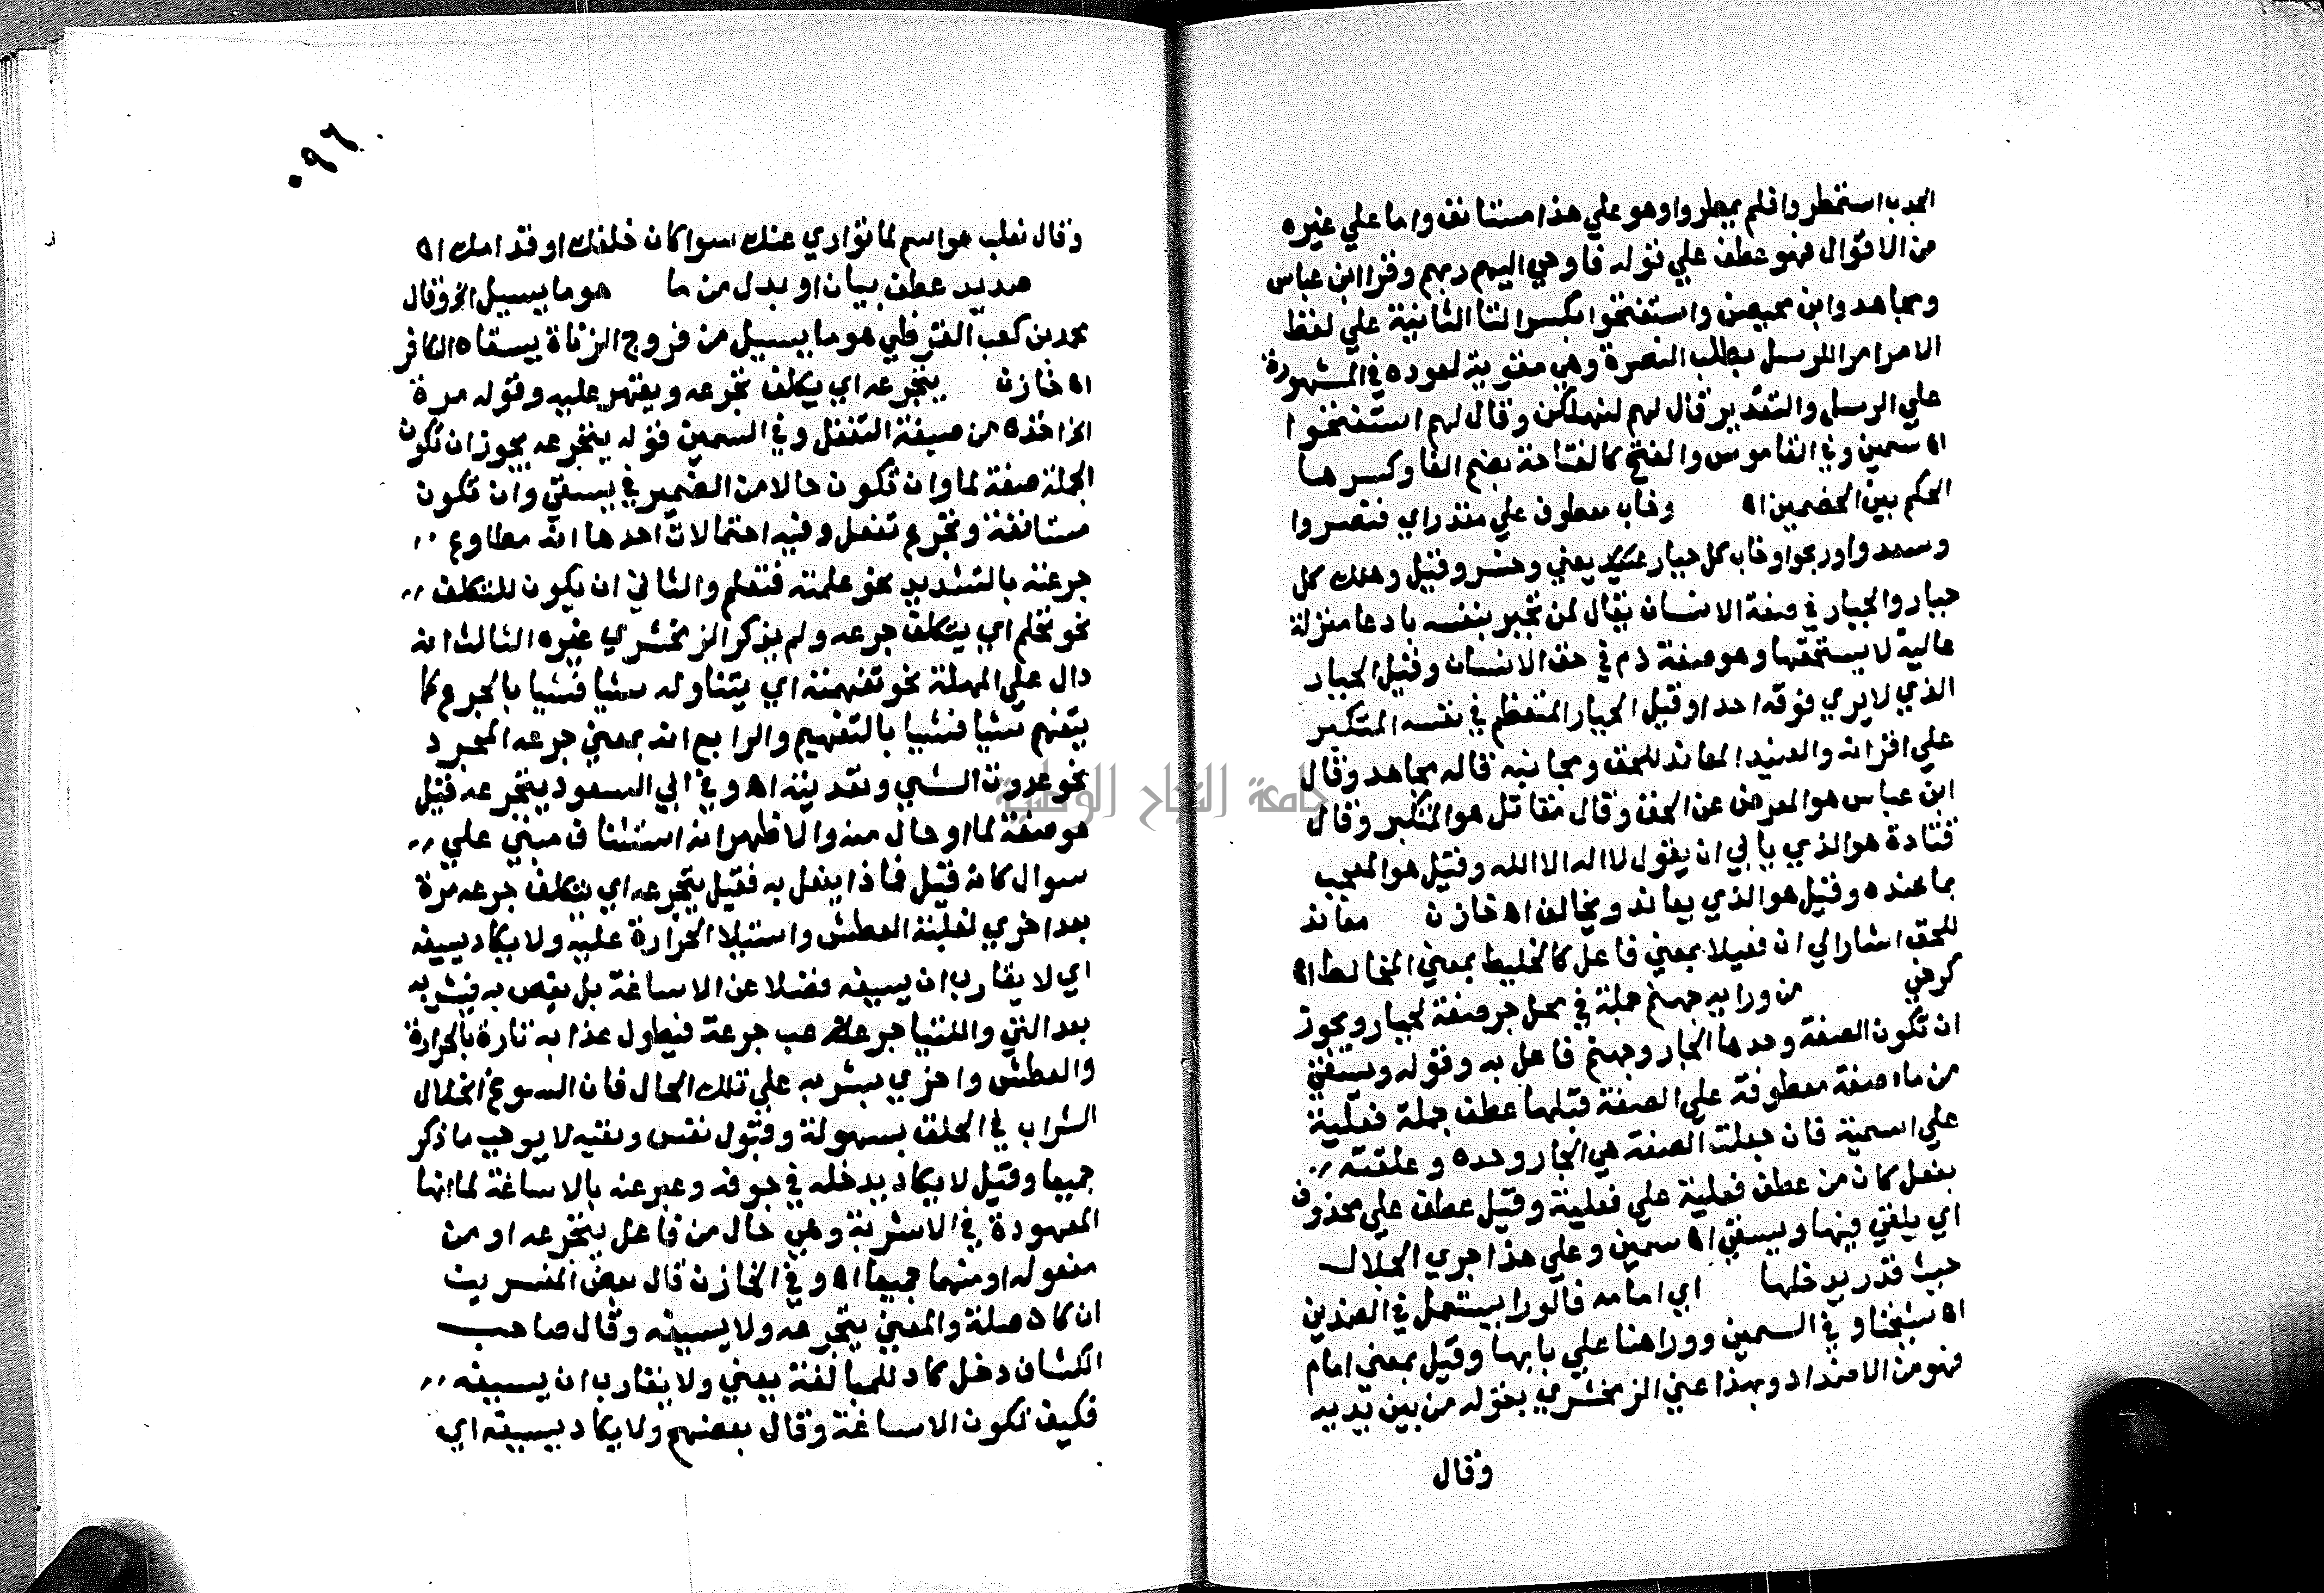 الجدب استمطروا فلم يمطروا وهو علي هذا مستانف واما علي غيره
من الاقوال فهو عطف علي قوله فاوحي اليهم ربهم وقرا ابن عباس
ومجاهد وابن محيصن واستفتحوا بكسر التا الثانية علي لفظ
الامر امرا للرسل بطلب النصرة وهي مقوية لعوده في المشهورة
علي الرسل والتقدير قال لهم لنهلكن وقال لهم استفتحوا
اه سمين وفي القاموس والفتح كالفتاحة بضم الفا وكسرها
الحكم بين الخصمين اه وخاب معطوف علي مقدر اي فنصروا
وسعدوا وربحوا وخاب كل جبار عنيد يعني وخسر وقيل وهلك كل
جبار والجبار في صفة الانسان يقال لمن تجبر بنفسه بادعا منزلة
عالية لا يستحقها وهو صفة ذم في حق الانسان وقيل الجبار
الذي لا يري فوقه احدا وقيل الجبار المتعظم في نفسه المتكبر
علي اقرانه والعنيد المعاند للحق ومجانبه قاله مجاهد وقال
ابن عباس هو المعرض عن الحق وقال مقاتل هو المتكبر وقال
قتادة هو الذي يابي ان يقول لا اله الا الله وقيل هو المعجب
بما عنده وقيل هو الذي يعاند ويخالف اه خازن معاند
للحق اشار الي ان فعيلا بمعني فاعل كالخليط بمعني المخالط اه
كرخي من ورايه جهنم جملة في محل جر صفة لجبار ويجوز
ان تكون الصفة وحدها الجار وجهنم فاعل به وقوله ويسقي
من ماء صفة معطوفة علي الصفة قبلها عطف جملة فعلية
علي اسمية فان جعلت الصفة هي الجار وحده وعلقته
بفعل كان من عطف فعلية علي فعلية وقيل عطف علي محذوف
اي يلقي فيها ويسقي اه سمين وعلي هذا جري الجلال
حيث قدر يدخلها اي امامه فالورا يستعمل في الضدين
اه شيخنا وفي السمين وورا هنا علي بابها وقيل بمعني امام
فهو من الاضداد وبهذا عني الزمخشري بقوله من بين يديه
وقال
٠٩٦
وقال ثعلب هو اسم لما تواري عنك سوا كان خلفك او قدامك اه
صديد عطف بيان او بدل من ما هو ما يسيل الخ وقال
محمد بن كعب القرظي هو ما يسيل من فروج الزناة يسقاه الكافر
اه خازن يتجرعه اي يكلف تجرعه ويقهر عليه وقوله مرة
الخ اخذه من صيغة التفعل وفي السمين قوله يتجرعه يجوز ان تكون
الجملة صفة لما وان تكون حالا من الضمير في يسقي وان تكون
مستانفة وتجرع تفعل وفيه احتمالات احدها انه مطاوع
جرعته بالتشديد نحو علمته فتعلم والثاني ان يكون للتكلف
نحو تحلم اي يتكلف جرعه ولم يذكر الزمخشري غيره الثالث انه
دال علي المهلة نحو تفهمته اي يتناوله شيا فشيا بالجرع كما
يتفهم شيا فشيا بالتفهيم والرابع انه بمعني جرعه المجرد
نحو عدوت الشي وتعديته اه وفي ابي السعود يتجرعه قيل
هو صفة لما او حال منه والاظهر انه استئناف مبني علي
سوال كانه قيل فماذا يفعل به فقيل يتجرعه اي يتكلف جرعه مرة
بعد اخري لغلبة العطش واستيلا الحرارة عليه ولا يكاد يسيغه
اي لا يقارب ان يسيغه فضلا عن الاساغة بل يغص به فيشربه
بعد اللتي واللتيا جرعة غب جرعة فيطول عذابه تارة بالحرارة
والعطش واخري بشربه علي تلك الحال فان السوغ انحدار
الشراب في الحلق بسهولة وقبول نفس ونفيه لا يوجب ما ذكر
جميعا وقيل لا يكاد يدخله في جوفه وعبر عنه بالاساغة لما انها
المعهودة في الاشربة وهي حال من فاعل يتجرعه او من
مفعوله او منهما جميعا اه وفي الخازن قال بعض المفسرين
ان كاد صلة والمعني يتجرعه ولا يسيغه وقال صاحب
الكشاف دخل كاد للمبالغة يعني ولا يقارب ان يسيغه
فكيف تكون الاساغة وقال بعضهم ولا يكاد يسيغه اي
جامعة النجاح الوطنية